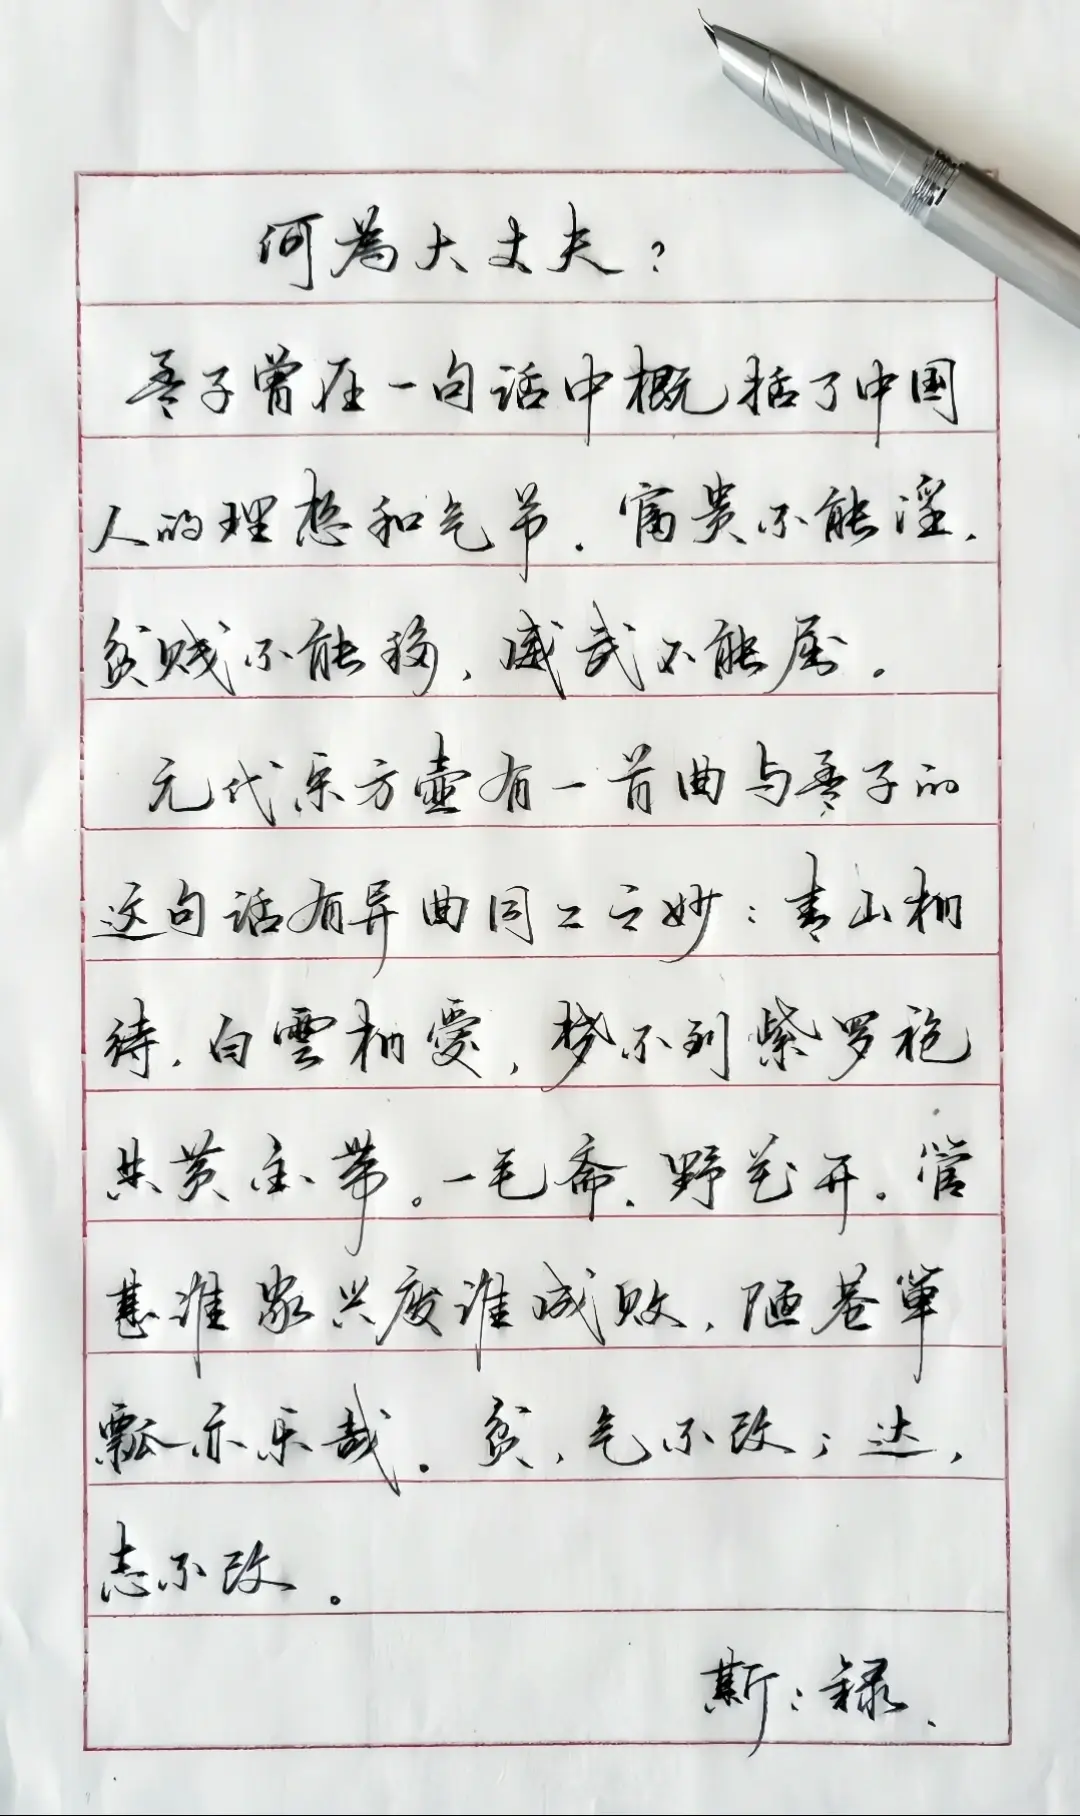 何為大丈夫？
孟子曾在一句话中概括了中国
人的理想和气节．富贵不能淫，
贫贱不能移，威武不能屈。
元代宋方壶有一首曲与孟子的
这句话有异曲同工之妙：青山相
待，白雲相愛，梦不到紫罗袍
共黄金带。一毛斋，野花开，管
甚谁家兴废谁成败，陋巷箪
瓢亦乐哉。贫，气不改；达，
志不改。
斯：録、